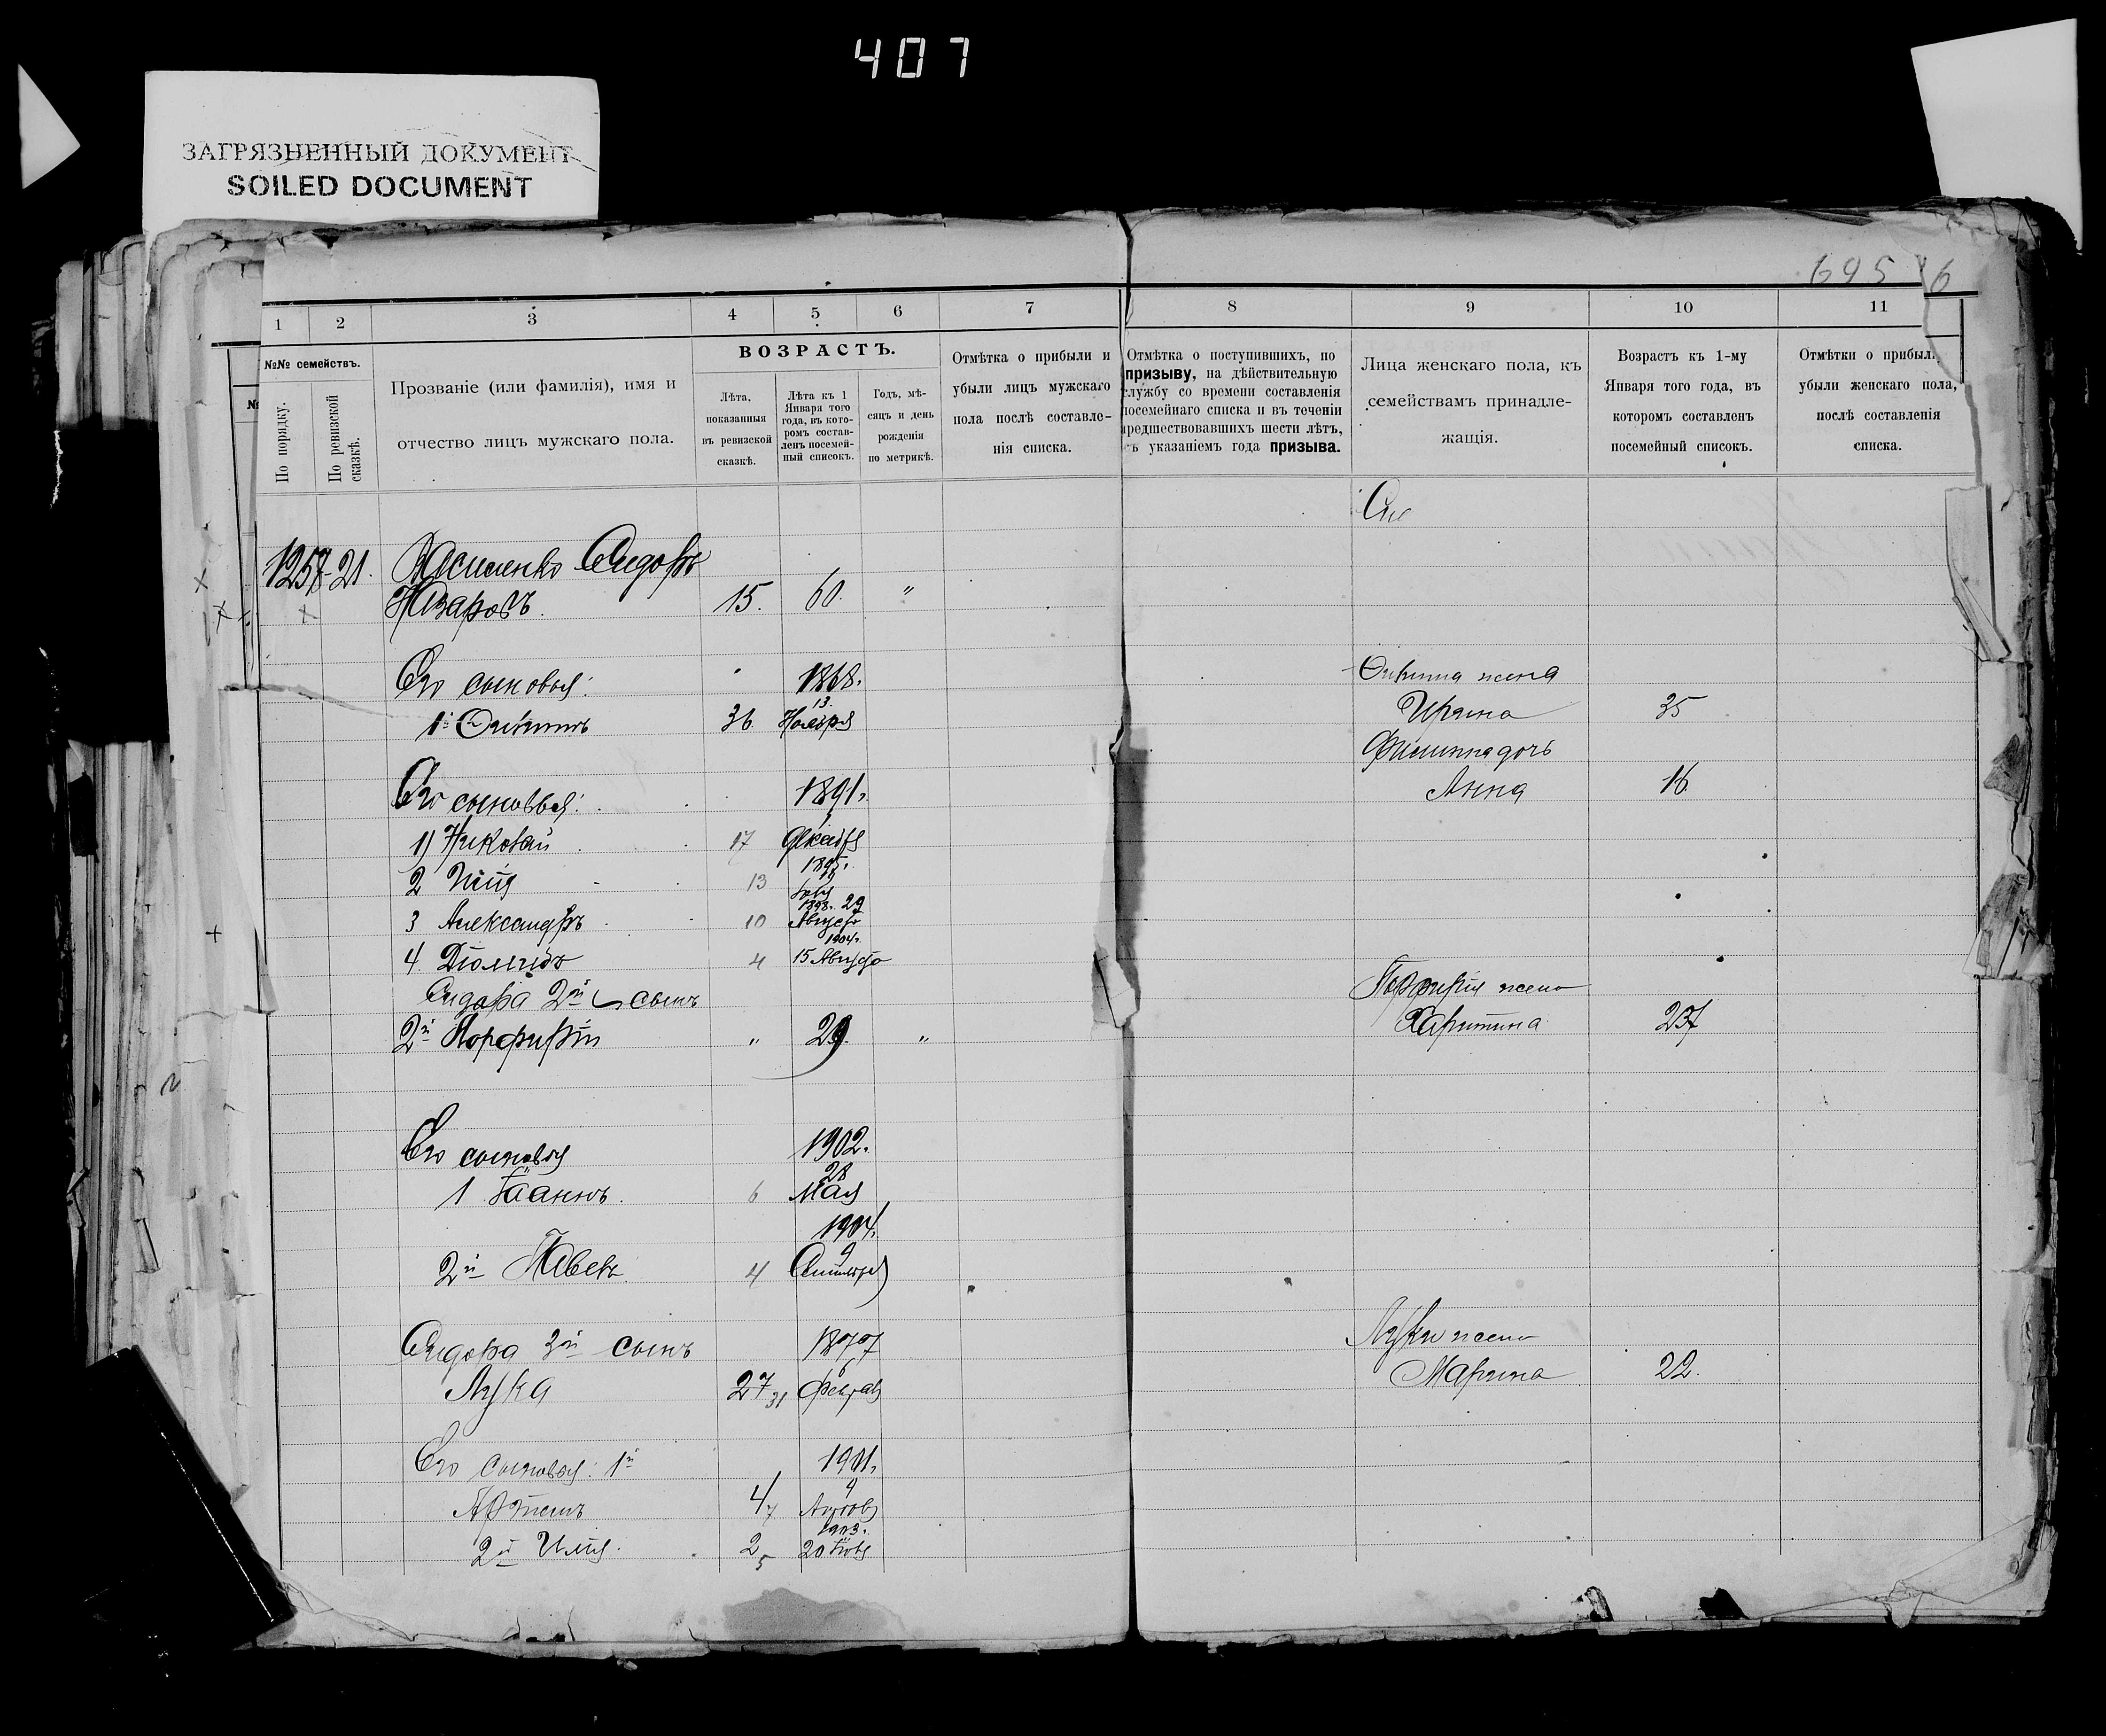 407
ЗАГРЯЗНЕННЫЙ ДОКУМЕНТ
SOILED DOCUMENT
695 6
1 2 3 4 5 6 7 8 9 10 11
№№ семействъ.
По порядку.
По ревизской сказкѣ.
Прозваніе (или фамилія), имя и
отчество лицъ мужскаго пола.
ВОЗРАСТЪ.
Лѣта,
показанныя
въ ревизской
сказкѣ.
Лѣта къ 1
Января того
года, въ кото-
ромъ состав-
ленъ посемей-
ный списокъ.
Годъ, мѣ-
сяцъ и день
рожденія
по метрикѣ.
Отмѣтка о прибыли и
убыли лицъ мужскаго
пола послѣ составле-
нія списка.
Отмѣтка о поступившихъ, по
призыву, на дѣйствительную
службу со времени составленія
посемейнаго списка и въ теченіи
предшествовавшихъ шести лѣтъ,
съ указаніемъ года призыва.
Лица женскаго пола, къ
семействамъ принадле-
жащія.
Возрастъ къ 1-му
Января того года, въ
которомъ составленъ
посемейный списокъ.
Отмѣтки о прибыл
убыли женскаго пола,
послѣ составленія
списка.
1258 21. Василенко Сидоръ
Назаровъ. 15. 60. "
Его сыновья: 1868. жена
1й 36. 13 Ноября Ирина 35
дочь
Его сыновья: 1891. Анна 16
1) Николай 17 Декабря
1895.
2 Илія 13
1898. 29
3 Александръ 10 Августа
1904.
4. 4 15 Августа
Сидора 2й сынъ Порфирія жена
2й Порфирій " 29. " Харитина 27
Его сыновья 1902.
28
1 Іоаннъ. 6 Мая
1904.
9
2й Павелъ 4 Сентября
Сидора 3й сынъ 1877 Луки жена
Лука 27 31 6 Февраля Марина 22.
Его сыновья: 1й 1901.
Артемъ 4 7 9
1903.
2й Илія. 2 5 20